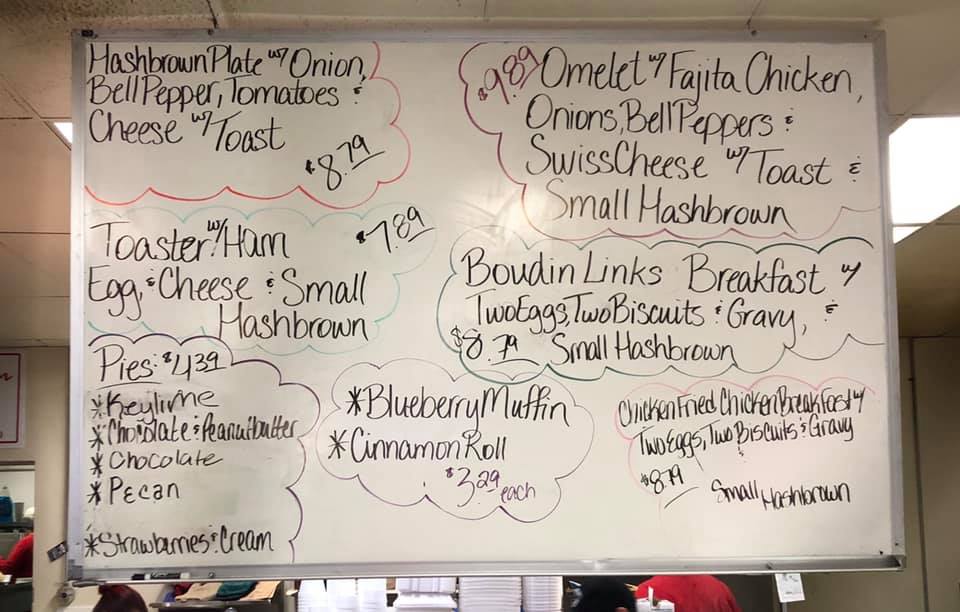 Hashbrown Plate w/ Onion,
Bell Pepper, Tomatoes &
Cheese w/ Toast
$8.79
$9.89 Omelet w/ Fajita Chicken,
Onions, Bell Peppers &
Swiss Cheese w/ Toast &
Small Hashbrown
Toaster w/ Ham $7.89
Egg, & Cheese & Small
Hashbrown
Boudin Links Breakfast w/
Two Eggs, Two Biscuits & Gravy, &
$8.79 Small Hashbrown
Pies: $4.39
*Keylime
*Chocolate & Peanutbutter
*Chocolate
*Pecan
*Strawberries & Cream
*Blueberry Muffin
*Cinnamon Roll
$3.29 each
Chicken Fried Chicken Breakfast w/
Two Eggs, Two Biscuits & Gravy
$8.79 Small Hashbrown